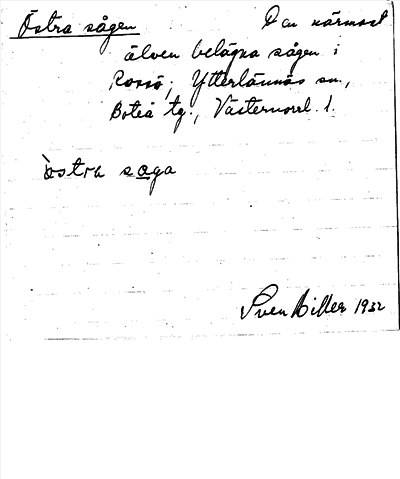 Östra sågen Den närmast
älven belägna sågen i
Rossö, Ytterlännäs sn.,
Boteå tg., Västernorrl. l.
östra såga
Sven Biller 1932